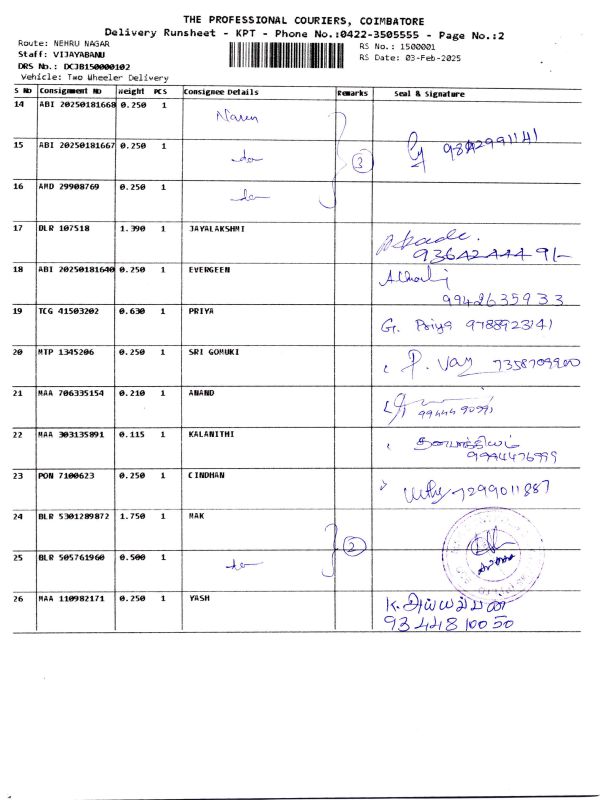 THE PROFESSIONAL COURIERS, COIMBATORE
Delivery Runsheet - KPT - Phone No.:0422-3505555 - Page No.:2
Route: NEHRU NAGAR
RS No.: 1500001
Staff: VIJAYABANU
RS Date: 03-Feb-2025
DRS No.: DCJB150000102
Vehicle: Two Wheeler Delivery
S No Consignment No Weight PCS Consignee Details Remarks Seal & Signature
14 ABI 20250181668 0.250 1 Naren
15 ABI 20250181667 0.250 1 do 3
16 AMD 29908769 0.250 1 do
17 DLR 107518 1.390 1 JAYALAKSHMI
18 ABI 20250181640 0.250 1 EVERGEEN 9942635933
19 TCG 41503202 0.630 1 PRIYA G. Priya 9788923141
20 MTP 1345206 0.250 1 SRI GOMUKI
21 MAA 706335154 0.210 1 ANAND
22 MAA 303135891 0.115 1 KALANITHI
23 PON 7100623 0.250 1 CINDHAN 7299011887
24 BLR 5301289872 1.750 1 MAK
25 BLR 505761960 0.500 1 do 2
26 MAA 110982171 0.250 1 YASH
9344810050